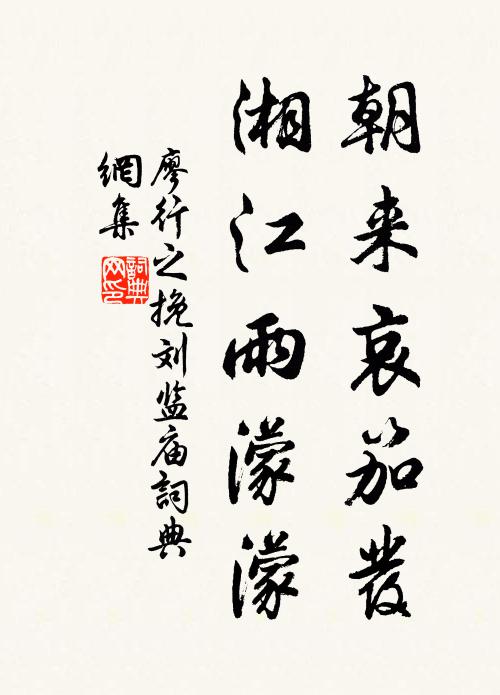 朝来哀笳發
湘江雨濛濛
廖行之挽刘监庙詞典
網集
詞典網印